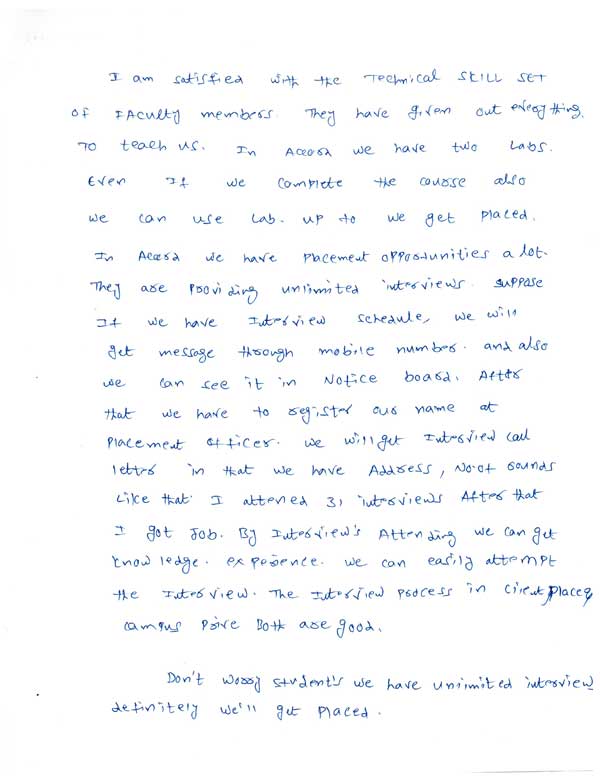 I am satisfied with the Technical SKILL SET
OF FAculty members. They have given out everything.
TO teach us. In Accord we have two Labs.
Even If we complete the course also
we can use Lab. up to we get placed.
In Accord we have placement opportunities a lot.
They are providing unlimited interviews. suppose
If we have Interview schedule, we will
get message through mobile number. and also
we can see it in Notice board. After
that we have to register our name at
placement officer. we will get Interview call
letter in that we have Address, No.of rounds
Like that. I attened 3, interviews After that
I got Job. By Interview's Attending we can get
knowledge. experience. we can easily attempt
the Interview. The Interview process in client place,
campus Drive Both are good.
Don't worry student's we have unlimited interview
definitely we'll get placed.